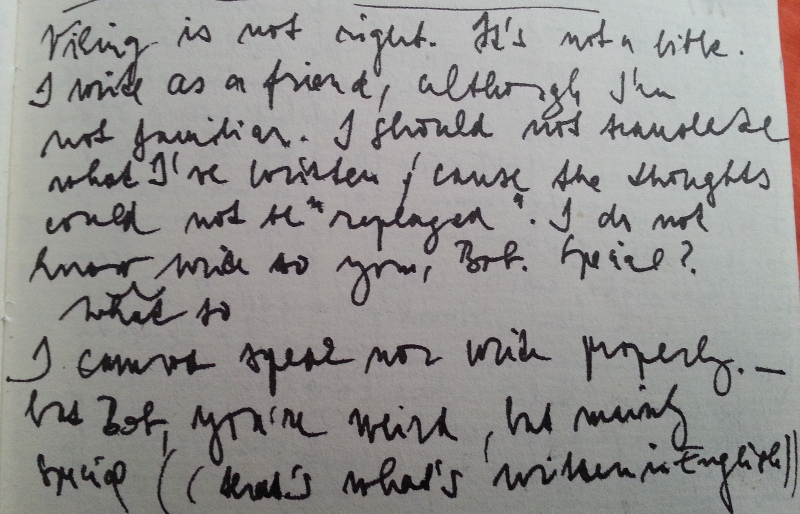 is not right. It's not a little.
I write as a friend, although I'm
not familiar. I should not translate
what I've written, 'cause the thoughts
could not be "replayed". I do not
know write to you, Bob. Special?
what to
I cannot speak nor write properly. —
but Bob, you're weird, but mainly
special ((that's what's written in English))